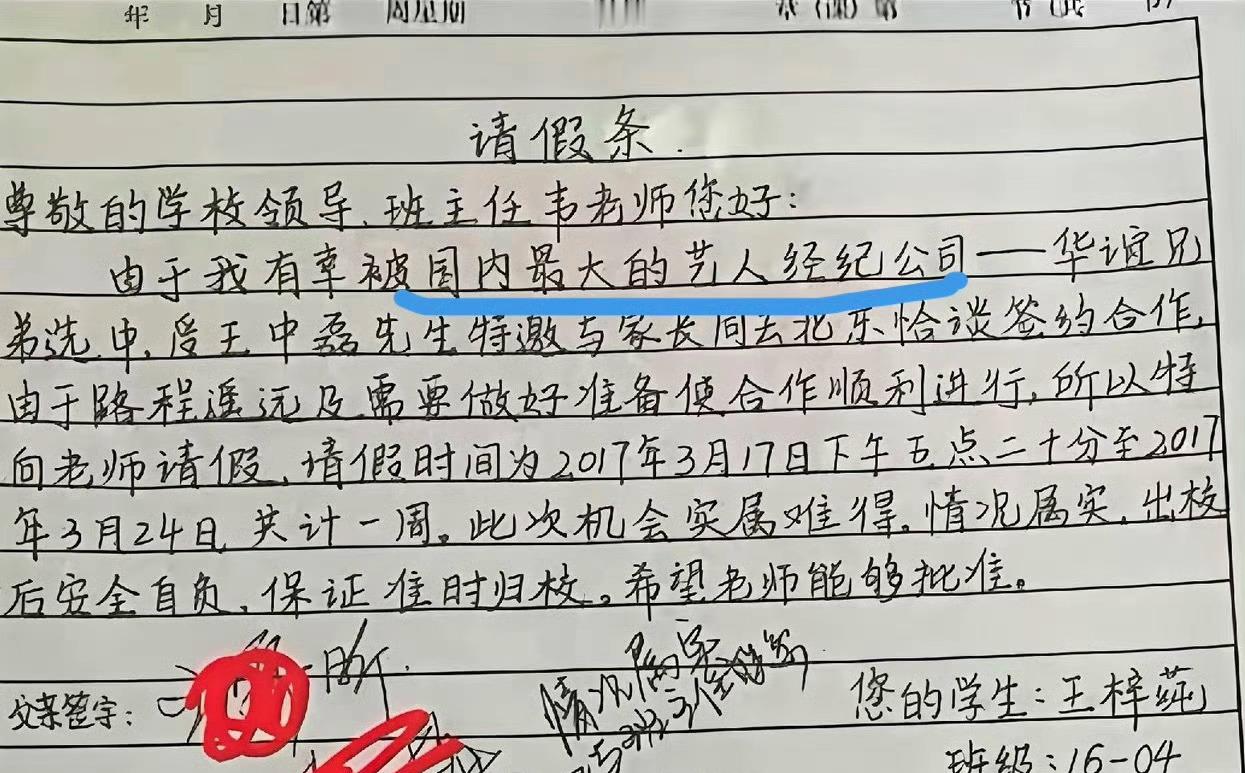 年 月 日第 周星期
请假条.
尊敬的学校领导、班主任韦老师您好:
由于我有幸被国内最大的艺人经纪公司——华谊兄
弟选中,受王中磊先生特邀与家长同去北京恰谈签约合作,
由于路程遥远及需要做好准备使合作顺利进行,所以特
向老师请假,请假时间为2017年3月17日下午五点二十分至2017
年3月24日,共计一周。此次机会实属难得,情况属实,出校
后安全自负,保证准时归校。希望老师能够批准。
情况属实
父亲签字:
您的学生:王梓莼
班级:16-04